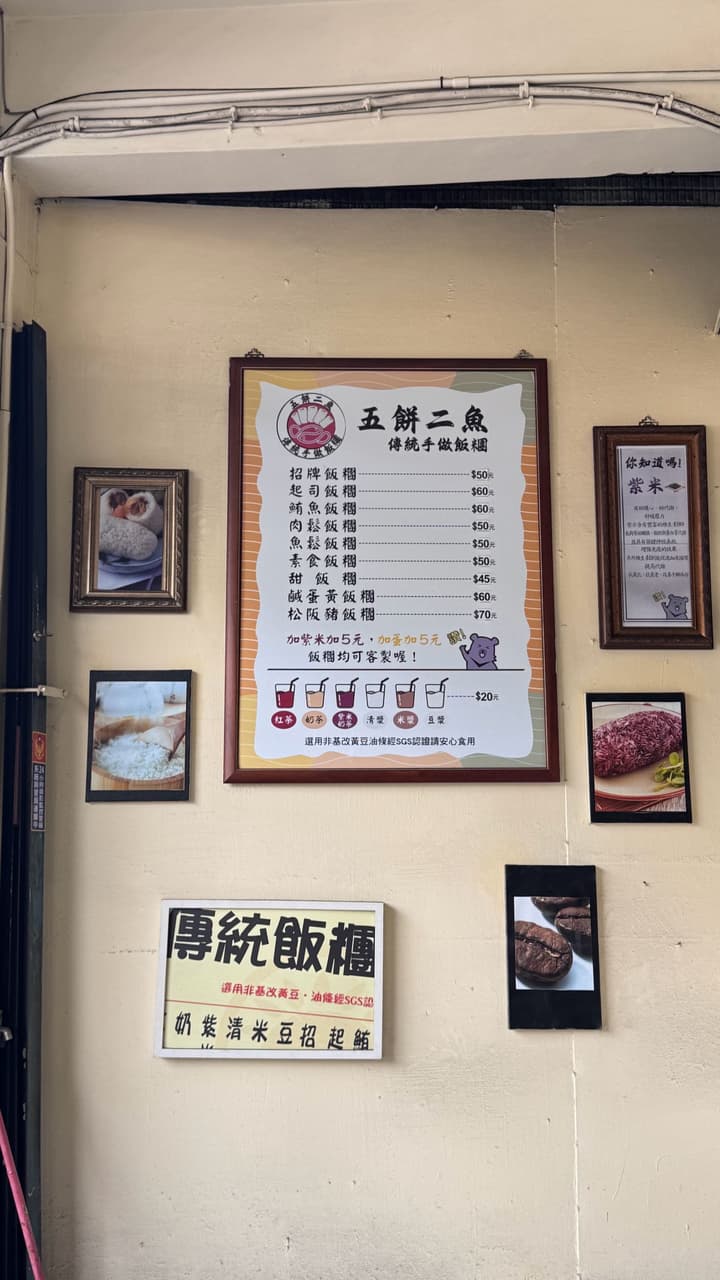 五餅二魚
傳統手做飯糰
五餅二魚
傳統手做飯糰
招牌飯糰 $50元
起司飯糰 $60元
鮪魚飯糰 $60元
肉鬆飯糰 $50元
魚鬆飯糰 $50元
素食飯糰 $50元
甜飯糰 $45元
鹹蛋黃飯糰 $60元
松阪豬飯糰 $70元
加紫米加5元，加蛋加5元
飯糰均可客製喔！
讚!
紅茶 奶茶 紫米奶茶 清漿 米漿 豆漿 $20元
選用非基改黃豆油條經SGS認證請安心食用
你知道嗎!
紫米
傳統飯糰
選用非基改黃豆·油條經SGS認
奶 紫 清 米 豆 招 起 鮪
米